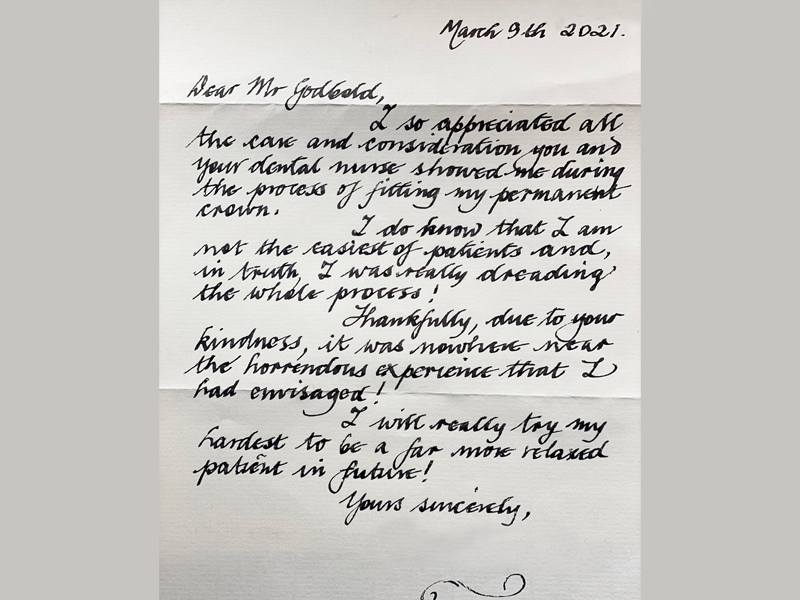 March 9th 2021.
Dear Mr Godbold,
I so appreciated all
the care and consideration you and
your dental nurse showed me during
the process of fitting my permanent
crown.
I do know that I am
not the easiest of patients and,
in truth, I was really dreading
the whole process!
Thankfully, due to your
kindness, it was nowhere near
the horrendous experience that I
had envisaged!
I will really try my
hardest to be a far more relaxed
patient in future!
Yours sincerely,